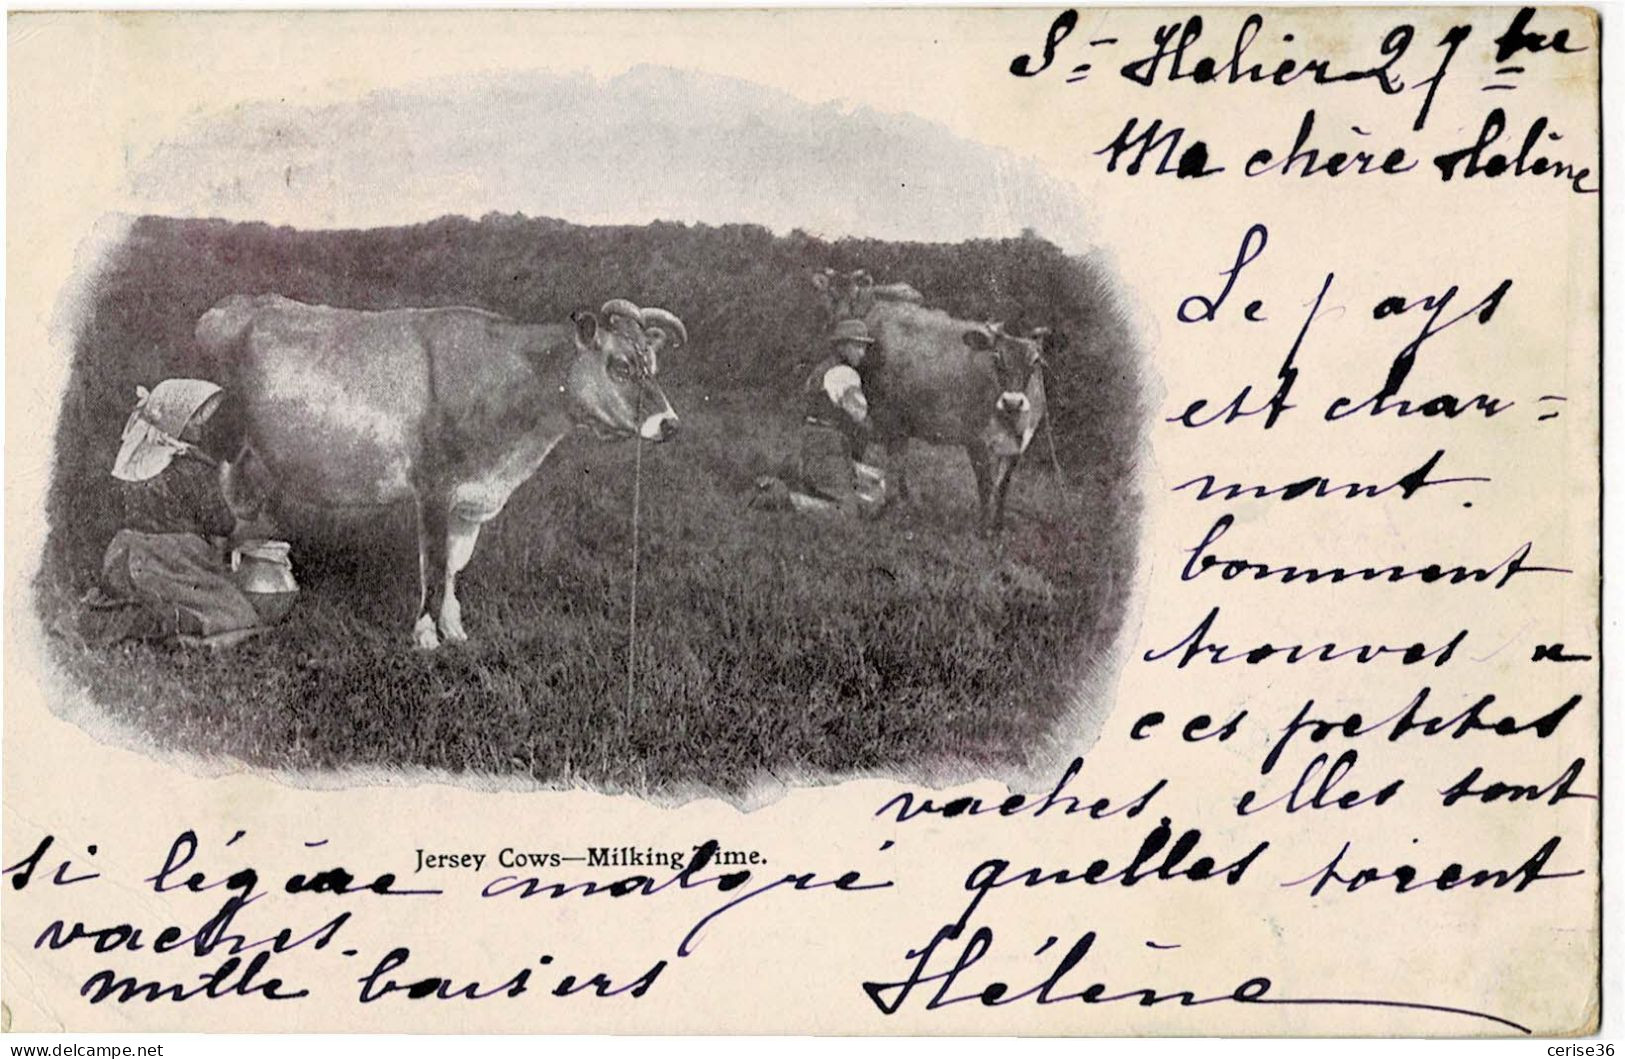 St Helier 2 7bre
Ma chère Hélène
Le pays
est char=
mant.
Comment
trouves
ces petites
vaches, elles sont
Jersey Cows—Milking Time.
si légère malgré quelles soient
vaches.
mille baisers Hélène
delcampe.net
cerise36